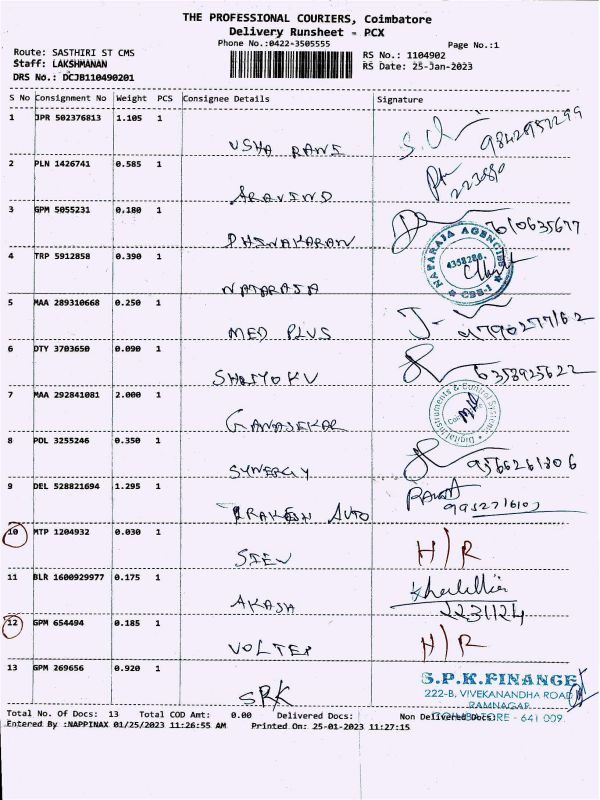 THE PROFESSIONAL COURIERS, Coimbatore
Delivery Runsheet - PCX
Phone No.:0422-3505555
Page No.:1
Route: SASTHIRI ST CMS
RS No.: 1104902
Staff: LAKSHMANAN
RS Date: 25-Jan-2023
DRS No.: DCJB110490201
S No Consignment No Weight PCS Consignee Details Signature
1 JPR 502376813 1.105 1
USHA RANI 9842957299
2 PLN 1426741 0.585 1
ARAVIND
3 GPM 5055231 0.180 1
DHINAKARAN 7010635677
4 TRP 5912858 0.390 1
NATARAJA
NATARAJA AGENCIES
4358286
CBE-1
5 MAA 289310668 0.250 1
MED PLUS
6 DTY 3703650 0.090 1
6358925622
7 MAA 292841081 2.000 1
GANASEKAR
Digital Instruments & Control Systems
8 POL 3255246 0.350 1
SYNERGY 9566261306
9 DEL 528821694 1.295 1
PRAKASH AUTO
10 MTP 1204932 0.030 1
SIEV H/R
11 BLR 1600929977 0.175 1
AKASH 2231124
12 GPM 654494 0.185 1
VOLTEP H/R
13 GPM 269656 0.920 1
SRK
S.P.K.FINANCE
222-B, VIVEKANANDHA ROAD
RAMNAGAR
COIMBATORE - 641 009.
Total No. Of Docs: 13 Total COD Amt: 0.00 Delivered Docs: Non Delivered Docs:
Entered By :NAPPINAX 01/25/2023 11:26:55 AM Printed On: 25-01-2023 11:27:15